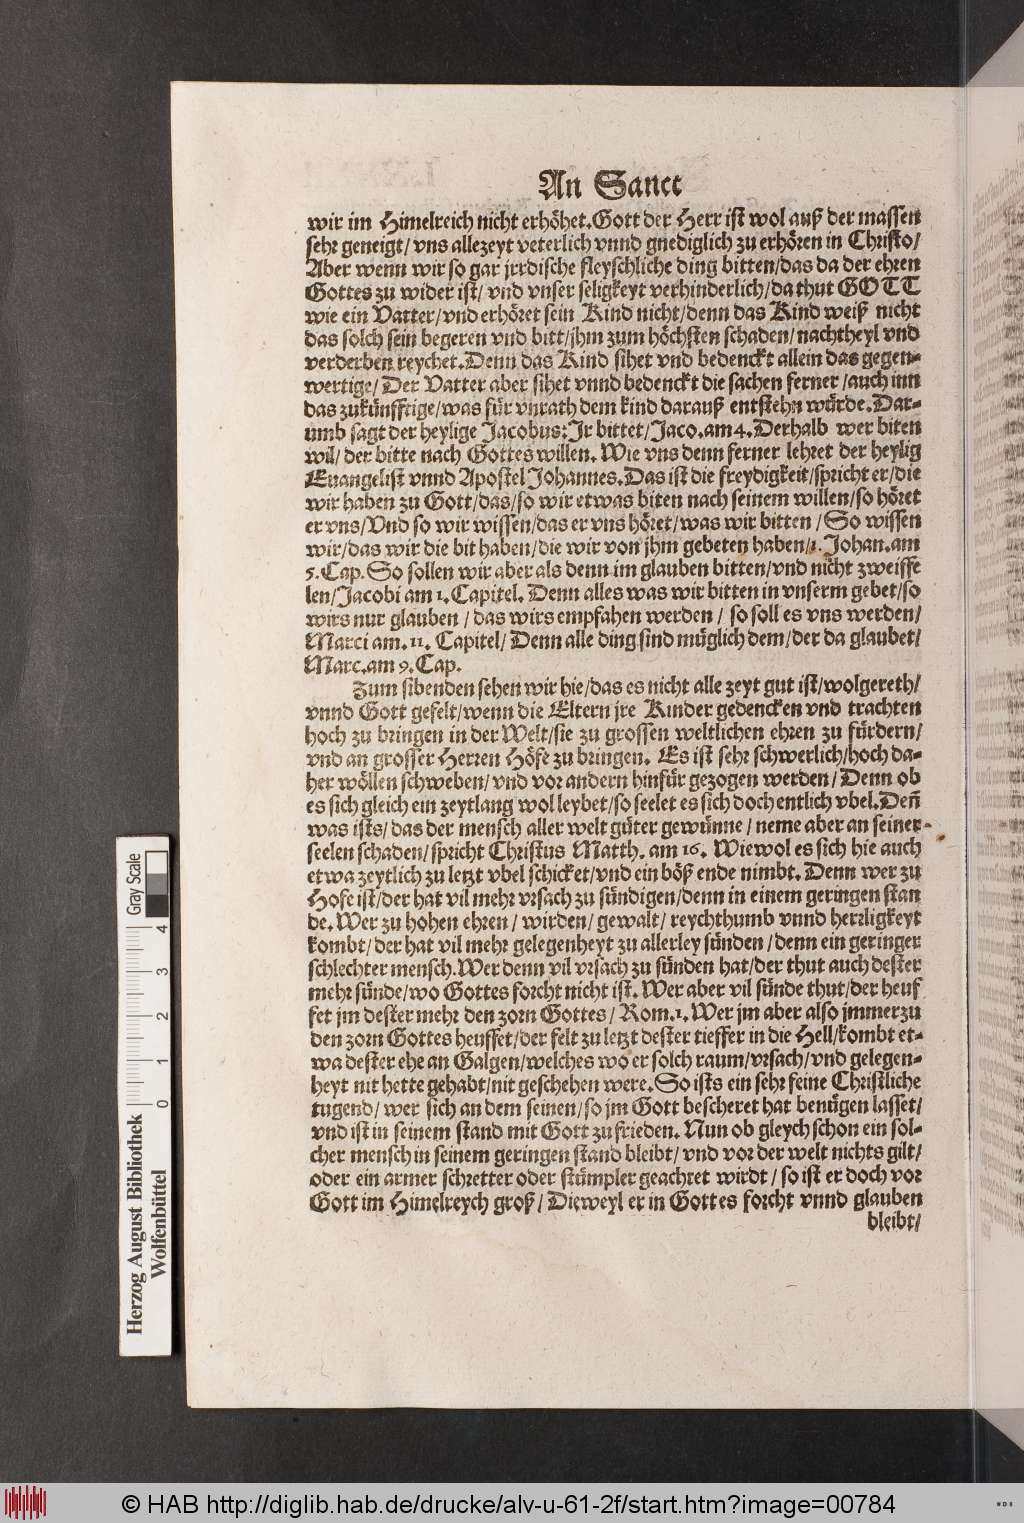 An Sanct
wir im Himelreich nicht erhöhet. Gott der Herr ist wol auß der massen
sehr geneigt/ vns allezeyt veterlich vnnd gnediglich zu erhören in Christo/
Aber wenn wir so gar jrrdische fleyschliche ding bitten/ das da der ehren
Gottes zu wider ist/ vnd vnser seligkeyt verhinderlich/ da thut GOTT
wie ein Vatter/ vnd erhöret sein Kind nicht/ denn das Kind weiß nicht
das solch sein begeren vnd bitt/ jhm zum höchsten schaden/ nachtheyl vnd
verderben reychet. Denn das Kind sihet vnd bedenckt allein das gegen-
wertige/ Der Vatter aber sihet vnnd bedenckt die sachen ferner/ auch inn
das zukünfftige/ was für vnrath dem kind darauß entstehn würde. Dar-
umb sagt der heylige Jacobus: Jr bittet/ Jaco. am 4. Derhalb wer biten
wil/ der bitte nach Gottes willen. Wie vns denn ferner lehret der heylig
Euangelist vnnd Apostel Johannes. Das ist die freydigkeit/ spricht er/ die
wir haben zu Gott/ das/ so wir etwas biten nach seinem willen/ so höret
er vns/ Vnd so wir wissen/ das er vns höret/ was wir bitten/ So wissen
wir/ das wir die bit haben/ die wir von jhm gebeten haben/ 1. Johan. am
5. Cap. So sollen wir aber als denn im glauben bitten/ vnd nicht zweiffe
len/ Jacobi am 1. Capitel. Denn alles was wir bitten in vnserm gebet/ so
wirs nur glauben/ das wirs empfahen werden/ so soll es vns werden/
Marci am. 11. Capitel/ Denn alle ding sind müglich dem/ der da glaubet/
Marc. am 9. Cap.
Zum sibenden sehen wir hie/ das es nicht alle zeyt gut ist/ wolgereth/
vnnd Gott gefelt/ wenn die Eltern jre Kinder gedencken vnd trachten
hoch zu bringen in der Welt/ sie zu grossen weltlichen ehren zu fürdern/
vnd an grosser Herren Höfe zu bringen. Es ist sehr schwerlich/ hoch da-
her wöllen schweben/ vnd vor andern hinfür gezogen werden/ Denn ob
es sich gleich ein zeytlang wol leybet/ so seelet es sich doch entlich vbel. Deñ
was ists/ das der mensch aller welt güter gewünne/ neme aber an seiner
seelen schaden/ spricht Christus Matth. am 16. Wiewol es sich hie auch
etwa zeytlich zu letzt vbel schicket/ vnd ein böß ende nimbt. Denn wer zu
Hofe ist/ der hat vil mehr vrsach zu sündigen/ denn in einem geringen stan
de. Wer zu hohen ehren/ wirden/ gewalt/ reychthumb vnnd herrligkeyt
kombt/ der hat vil mehr gelegenheyt zu allerley sünden/ denn ein geringer
schlechter mensch. Wer denn vil vrsach zu sünden hat/ der thut auch dester
mehr sünde/ wo Gottes forcht nicht ist. Wer aber vil sünde thut/ der heuf
fet jm dester mehr den zorn Gottes/ Rom. 1. Wer jm aber also jmmerzu
den zorn Gottes heuffet/ der felt zu letzt dester tieffer in die Hell/ kombt et-
wa dester ehe an Galgen/ welches wo er solch raum/ vrsach/ vnd gelegen-
heyt nit hette gehabt/ nit geschehen were. So ists ein sehr feine Christliche
tugend/ wer sich an dem seinen/ so jm Gott bescheret hat benügen lasset/
vnd ist in seinem stand mit Gott zu frieden. Nun ob gleych schon ein sol-
cher mensch in seinem geringen stand bleibt/ vnd vor der welt nichts gilt/
oder ein armer schretter oder stümpler geachtet wirdt/ so ist er doch vor
Gott im Himelreych groß/ Dieweyl er in Gottes forcht vnnd glauben
bleibt/
Gray Scale
0 1 2 3 4
Herzog August Bibliothek
Wolfenbüttel
© HAB http://diglib.hab.de/drucke/alv-u-61-2f/start.htm?image=00784